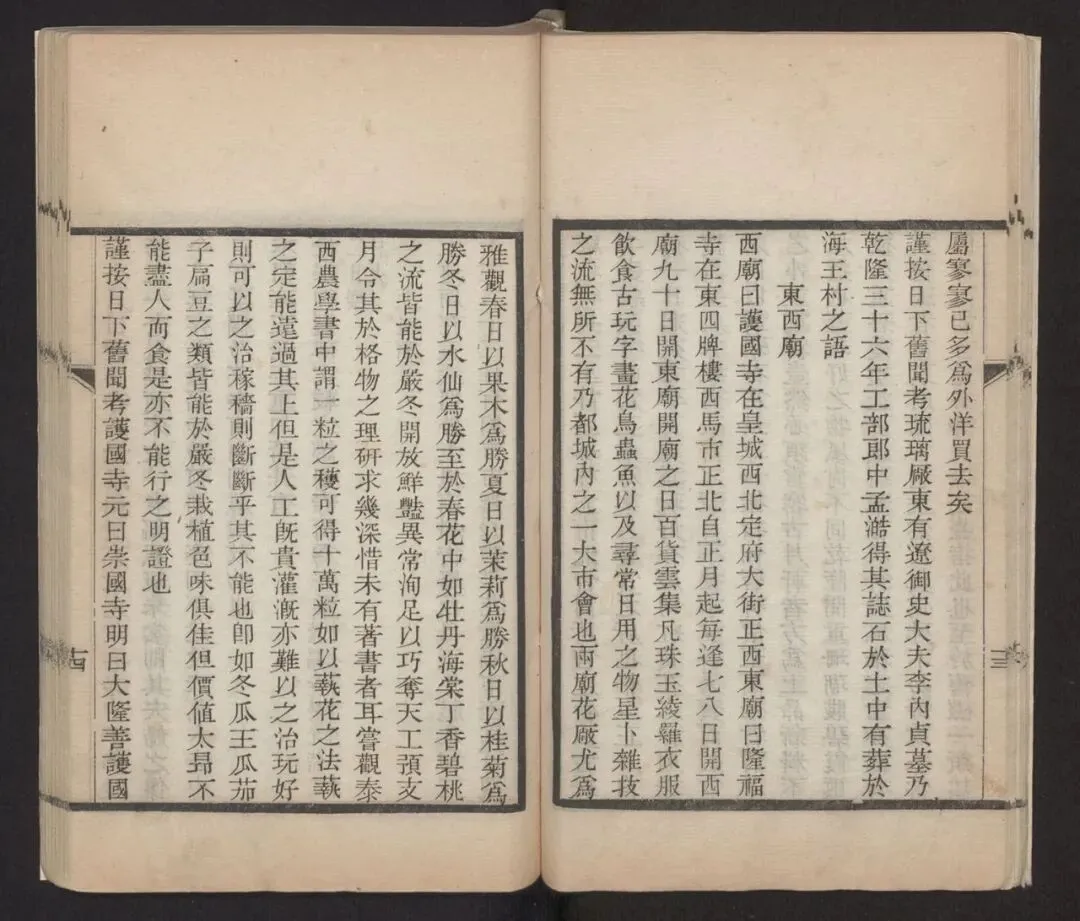 屬寥寥已多爲外洋買去矣
謹按日下舊聞考琉璃厰東有遼御史大夫李內貞墓乃
乾隆三十六年工部郎中孟澔得其誌石於土中有葬於
海王村之語
東西廟
西廟曰護國寺在皇城西北定府大街正西東廟曰隆福
寺在東四牌樓西馬市正北自正月起每逢七八日開西
廟九十日開東廟開廟之日百貨雲集凡珠玉綾羅衣服
飲食古玩字畫花鳥蟲魚以及尋常日用之物星卜雜技
之流無所不有乃都城內之一大市會也兩廟花厰尤爲
雅觀春日以果木爲勝夏日以茉莉爲勝秋日以桂菊爲
勝冬日以水仙爲勝至於春花中如牡丹海棠丁香碧桃
之流皆能於嚴冬開放鮮豔異常洵足以巧奪天工預支
月令其於格物之理研求幾深惜未有著書者耳嘗觀泰
西農學書中謂一粒之穫可得十萬粒如以蓺花之法蓺
之定能遠過其上但是人工旣貴灌漑亦難以之治玩好
則可以之治稼穡則斷斷乎其不能也卽如冬瓜王瓜茄
子扁豆之類皆能於嚴冬栽植色味俱佳但價値太昻不
能盡人而食是亦不能行之明證也
謹按日下舊聞考護國寺元曰崇國寺明曰大隆善護國